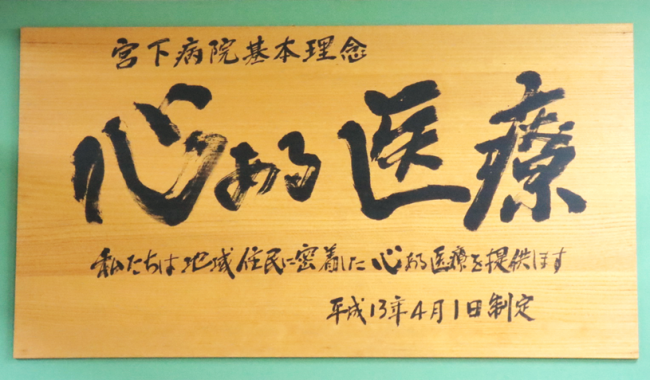 宮下病院基本理念
心ある医療
私たちは地域住民に密着した心ある医療を提供します
平成13年4月1日制定